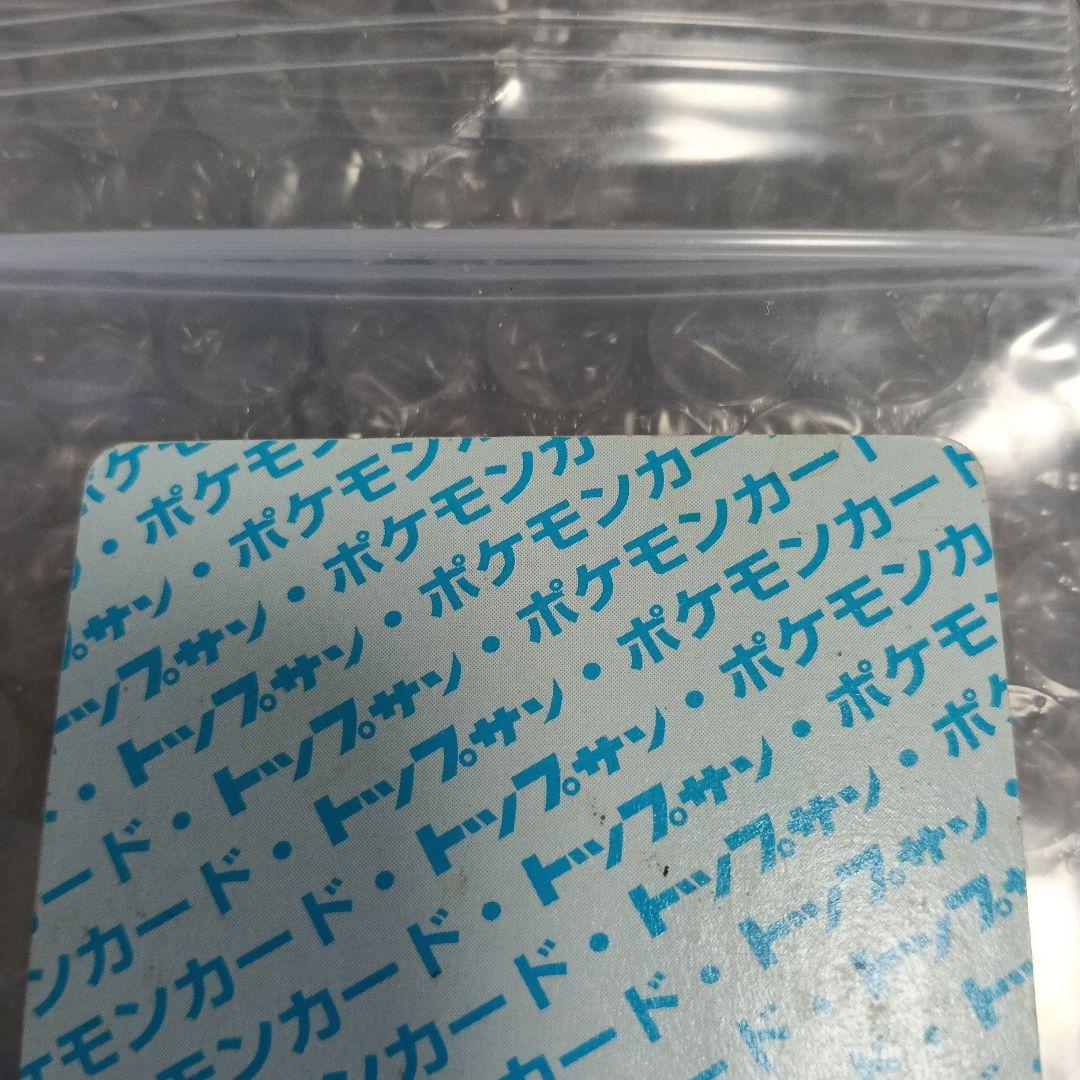 ポケモ
・ポケモン
プサン・ポケモン
トップサン・ポケモンカ
・トップサン・ポケモンカー
ード・トップサン・ポケモンカード
ンカード・トップサン・ポケモンカード
ケモンカード・トップサン・ポケモンカ
ンカード・トップサン・ポケモ
カード・トップサン・ポ
ード・トップサン・
ド・トップ